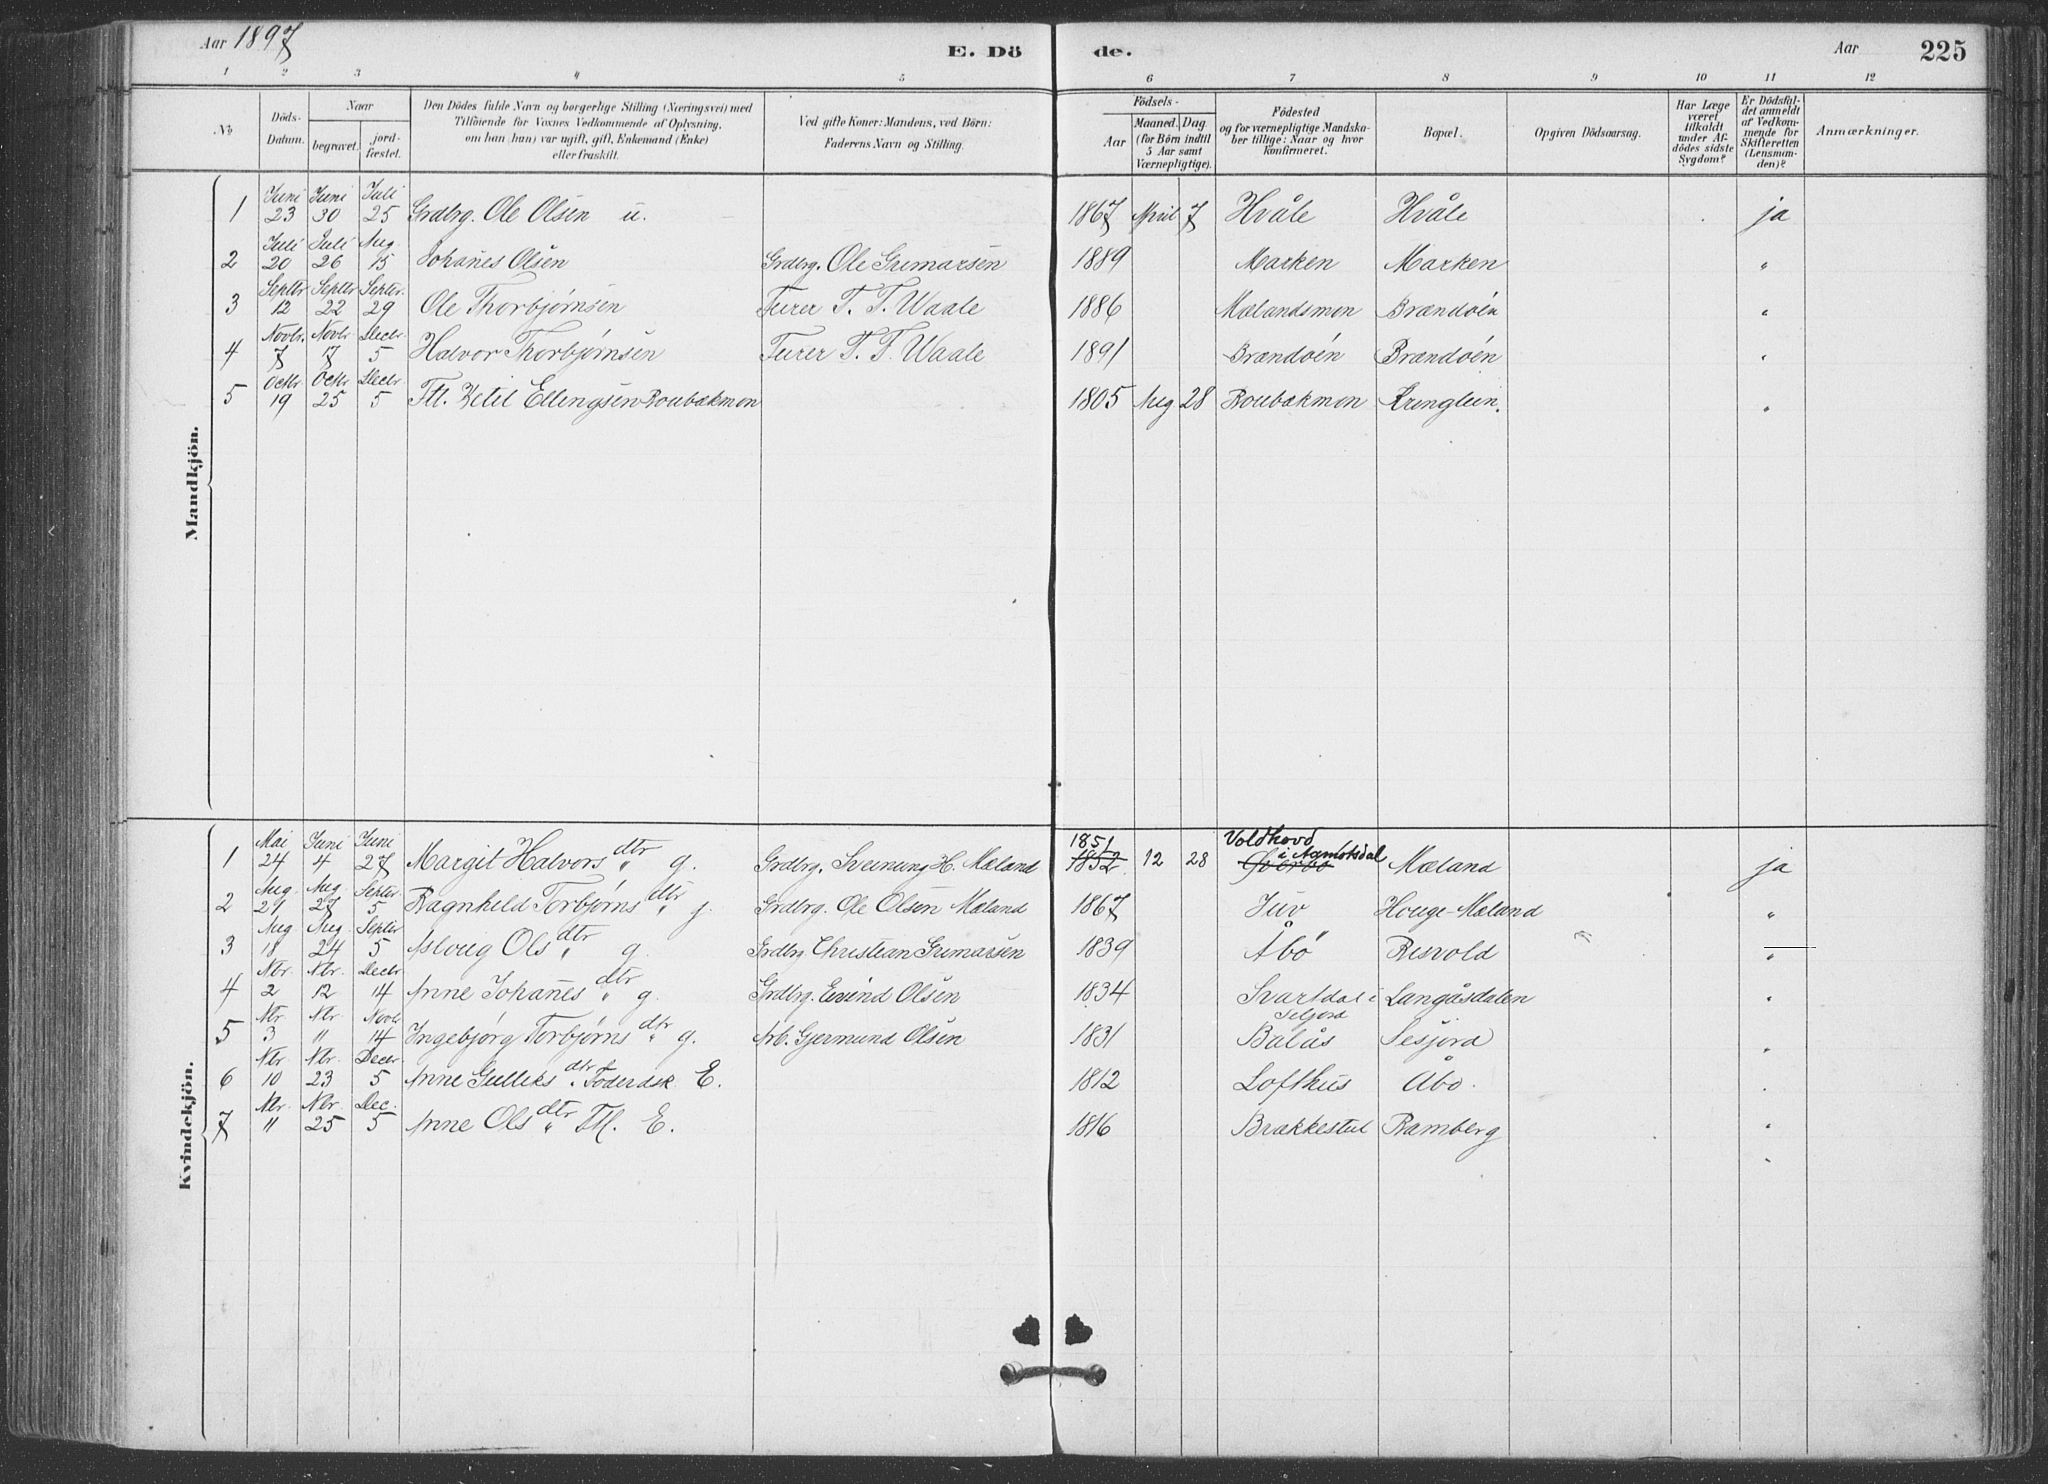 Aar 1897
E. Dö
de.
Aar
225
1 2 3 4 5 6 7 8 9 10 11 12
No
Döds-Datum.
Naar
begravet.
jord-fæstet.
Den Dödes fulde Navn og borgerlige Stilling (Næringsvei) med
Tilföiende for Voxnes Vedkommende af Oplysning,
om han (hun) var ugift, gift, Enkemand (Enke)
eller fraskilt.
Ved gifte Koner: Mandens, ved Börn:
Faderens Navn og Stilling.
Födsels-
Aar
Maaned. Dag
(for Börn indtil
5 Aar samt
Værnepligtige).
Födested
og for værnepligtige Mandska-
ber tillige: Naar og hvor
konfirmeret.
Bopæl.
Opgiven Dödsaarsag.
Har Læge
været
tilkaldt
under Af-
dödes sidste
Sygdom?
Er Dödsfal-
det anmeldt
af Vedkom-
mende for
Skifteretten
(Lensman-
den)?
Anmærkninger.
Mandkjön.
Juni Juni Juli
1 23 30 25 Grdbrg. Ole Olsen u. 1867 April 7 Hvåle Hvåle ja
Juli Juli Aug
2 20 26 15 Johanes Olsen Grdbrg. Ole Gunnarsen 1889 Marken Marken "
Septbr Septbr Septbr.
3 12 22 29 Ole Thorbjørnsen Furer T. T. Waale 1886 Mælandsmon Brændöen "
Novbr. Novbr Decbr
4 7 17 5 Halvor Thorbjørnsen Furer T. T. Waale 1891 Brændöen Brændöen "
Octbr Octbr Decbr
5 19 25 5 Fttl. Ketil Ellingsen Roubækmon 1805 Aug 28 Roubækmon Kringlein. "
Kvindekjön.
Mai Juni Juni dtr 1851 Voldhovd
1 24 4 27 Margit Halvors " g. Grdbrg. Sveinung H. Mæland 1852 12 28 i Aamotsdal Mæland ja
Aug Aug Septbr dtr
2 21 27 5 Ragnhild Torbjørns " g. Grdbrg. Ole Olsen Mæland 1867 Juv Houge-Mæland "
Aug Aug Septbr dtr
3 18 24 5 Asloug Ols " g. Grdbrg Christian Gunnarsen 1839 Åbö Risvold "
Nbr. Nbr. Decbr dtr
4 2 12 14 Anne Johanes " g. Grdbrg. Eivind Olsen 1834 Svartdal i Seljord Langåsdalen "
Nbr. Nbr. Novbr dtr
5 3 " 14 Ingebjørg Torbjørns " g. Arb. Gjermund Olsen 1831 Balås Sesjord "
Nbr. Nbr. Decbr. dtr
6 10 23 5 Anne Gulliks " Föderdsk E. 1812 Lofthus Åbo. "
Nbr. Nbr. Dec. dtr
7 " 25 5 Anne Ols " Ftl. E. 1816 Brækkestul Ramberg "
"